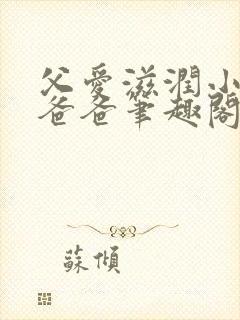 父愛滋潤小
爸爸筆趣閣
蘇傾